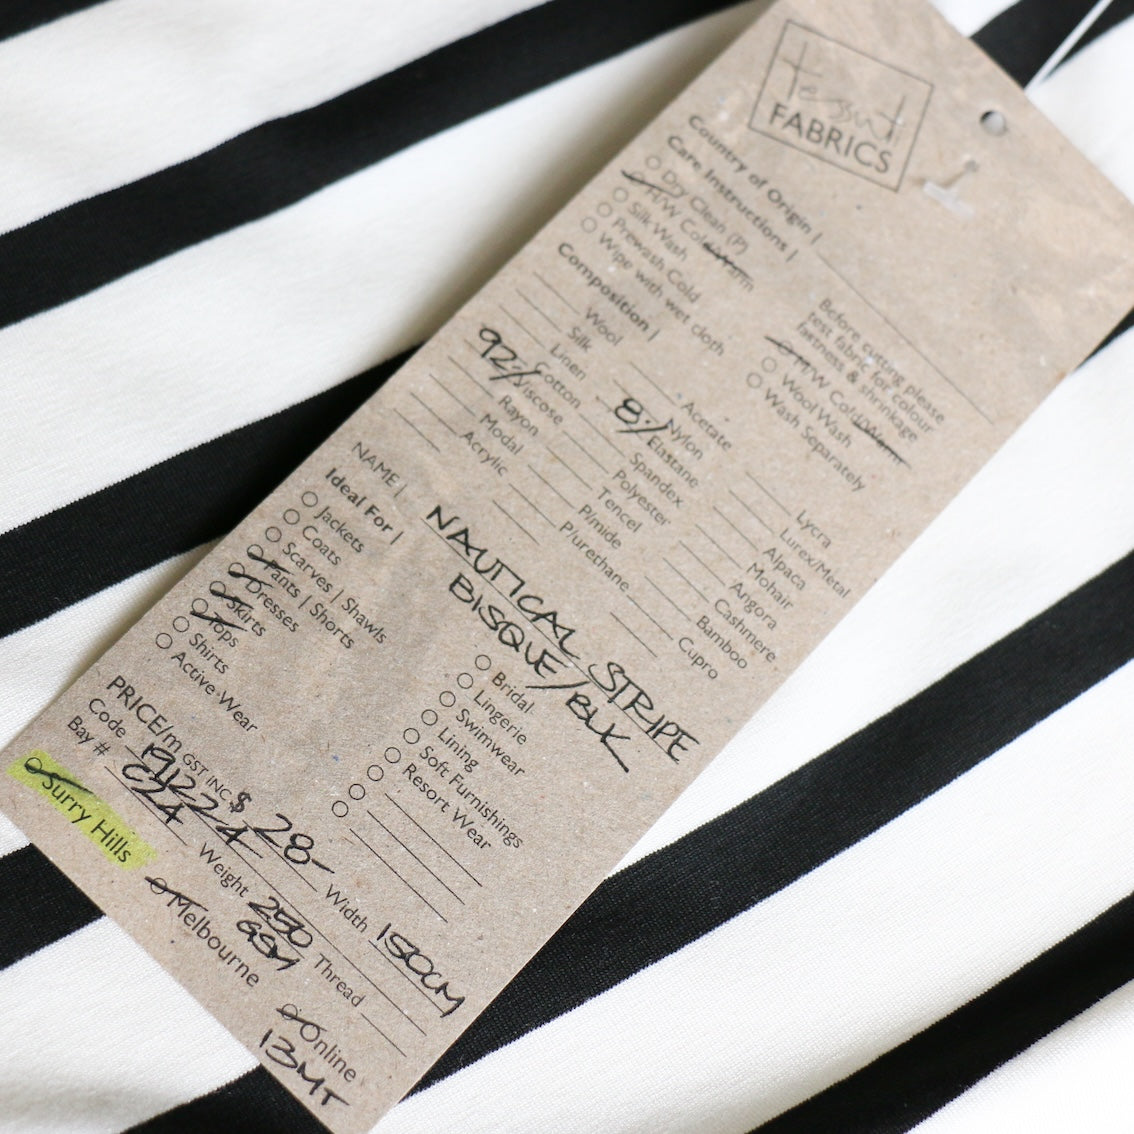 tessuti
FABRICS
Country of Origin |
Care Instructions |
Dry Clean (P)
H/W Cold/Warm
Silk Wash
Prewash Cold
Wipe with wet cloth
Before cutting please
test fabric for colour
fastness & shrinkage
H/W Cold/Warm
Wool Wash
Wash Separately
Composition |
Wool
Silk
Linen
Cotton
92% Viscose
Rayon
Modal
Acrylic
Acetate
Nylon
8% Elastane
Spandex
Polyester
Tencel
P/mide
P/urethane
Lycra
Lurex/Metal
Alpaca
Mohair
Angora
Cashmere
Bamboo
Cupro
NAME | NAUTICAL STRIPE
BISQUE/BLK
Ideal For |
Jackets
Coats
Scarves | Shawls
Pants | Shorts
Dresses
Skirts
Tops
Shirts
Active Wear
Bridal
Lingerie
Swimwear
Lining
Soft Furnishings
Resort Wear
PRICE/m GST INC $ 28-
Code 191224 Width 150CM
Bay # C24 Weight 250 GSM Thread
Surry Hills Melbourne Online
13MT